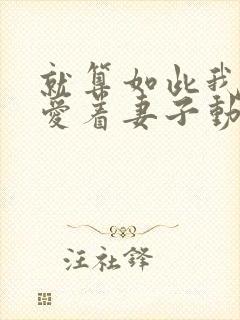 就算如此我
愛着妻子動
汪社鋒